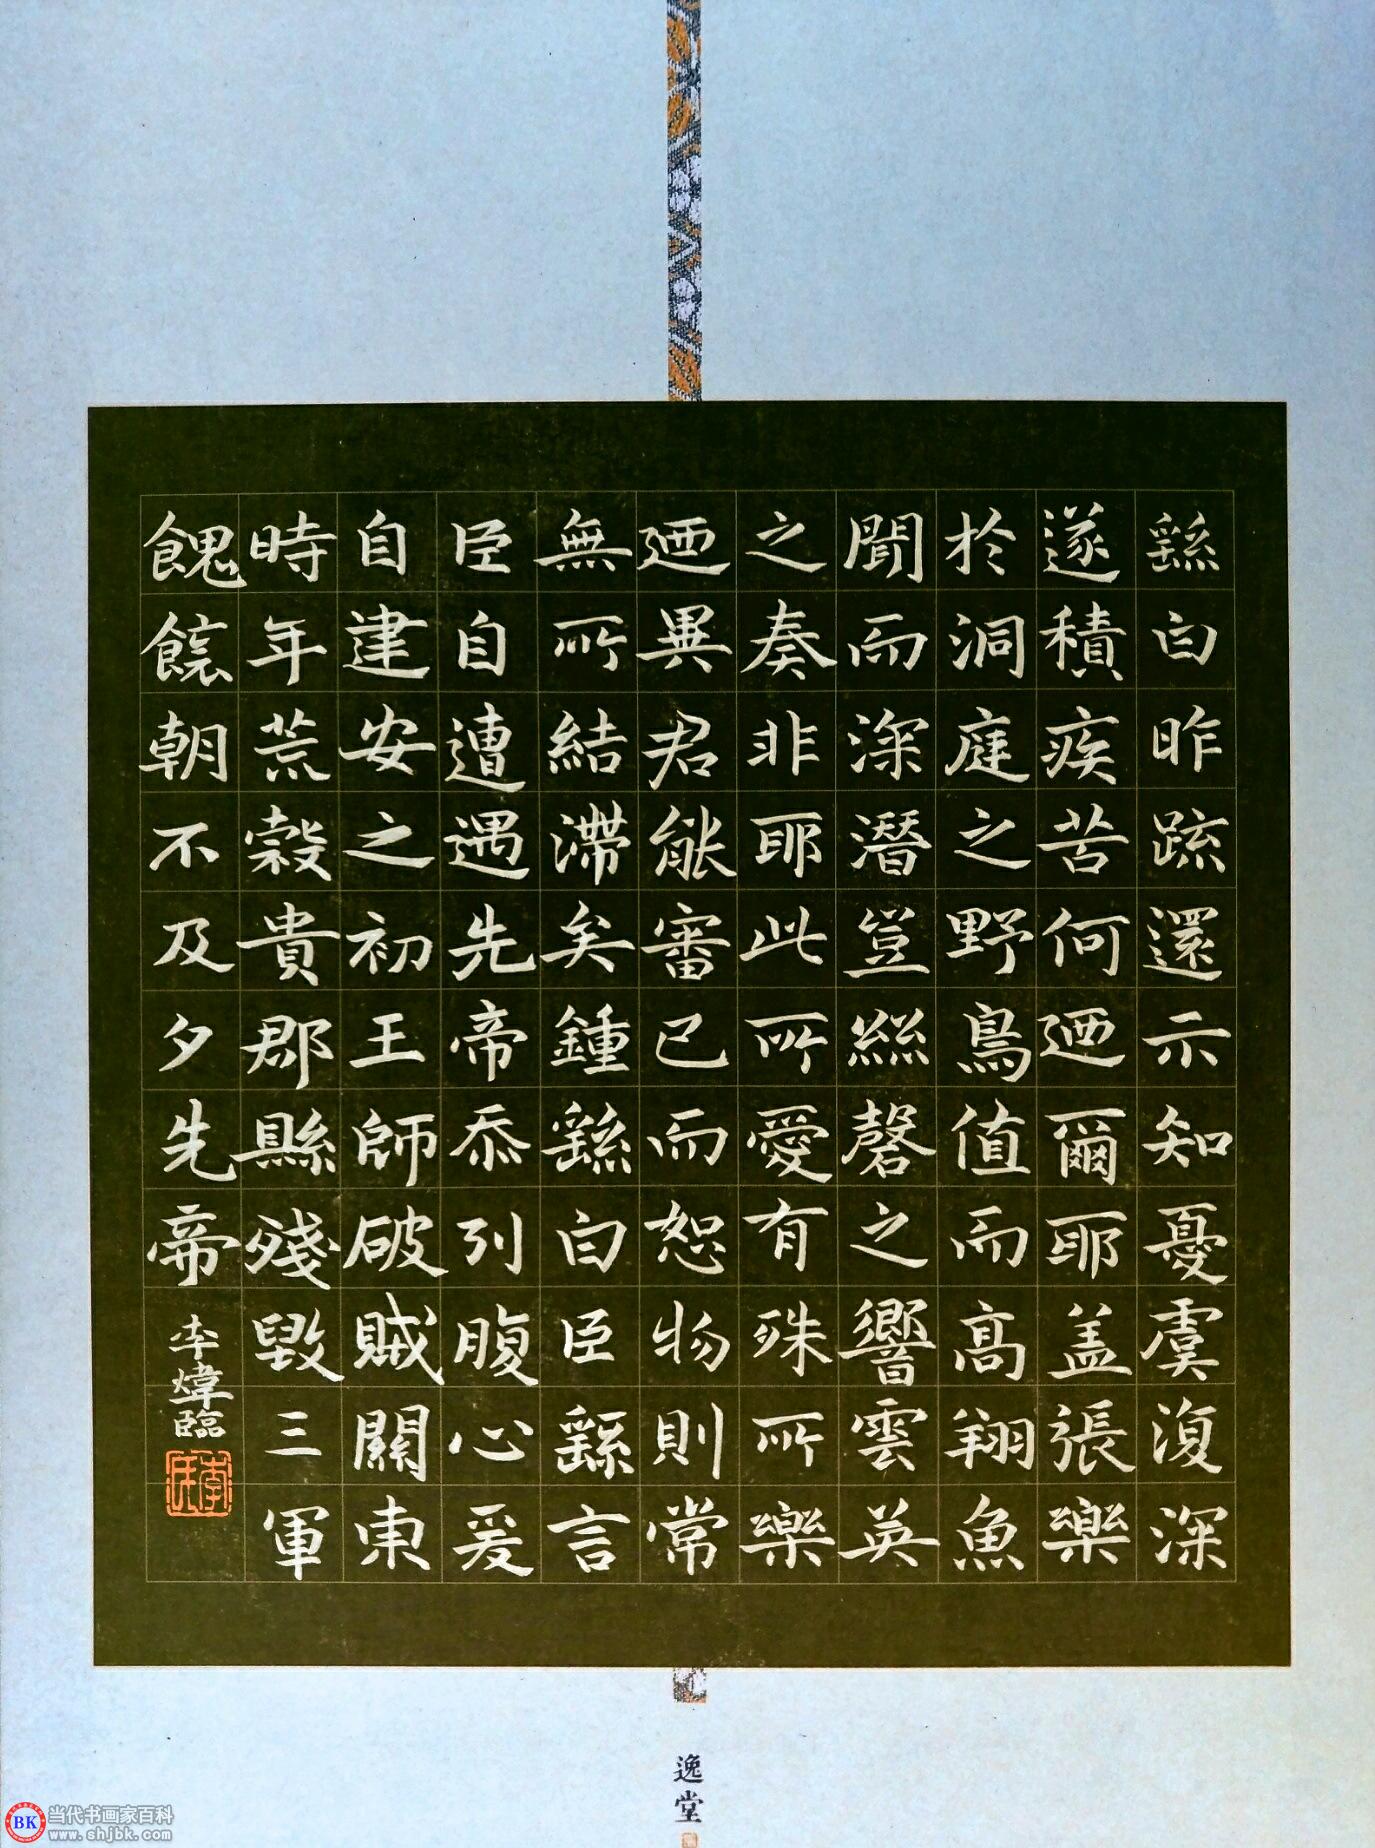 繇白昨疏還示知憂虞復深
遂積疾苦何迺爾耶盖張樂
於洞庭之野鳥值而高翔魚
聞而深潛豈絲磬之響雲英
之奏非耶此所愛有殊所樂
迺異君能審己而恕物則常
無所結滯矣鍾繇白臣繇言
臣自遭遇先帝忝列腹心爰
自建安之初王師破賊關東
時年荒穀貴郡縣殘毀三軍
餽饟朝不及夕先帝
李煒臨
逸堂
BK 当代书画家百科
www.shjbk.com